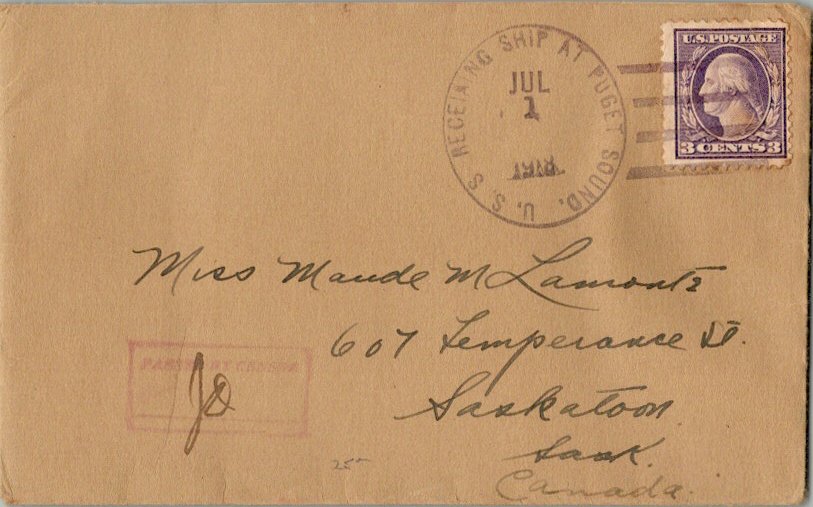 U. S. S. RECEIVING SHIP AT PUGET SOUND.
JUL
1
U.S. POSTAGE
3 CENTS 3
Miss Maude M Lamonts
607 Temperance St.
Saskatoon
Sask.
Canada.
PASSED BY CENSOR
25